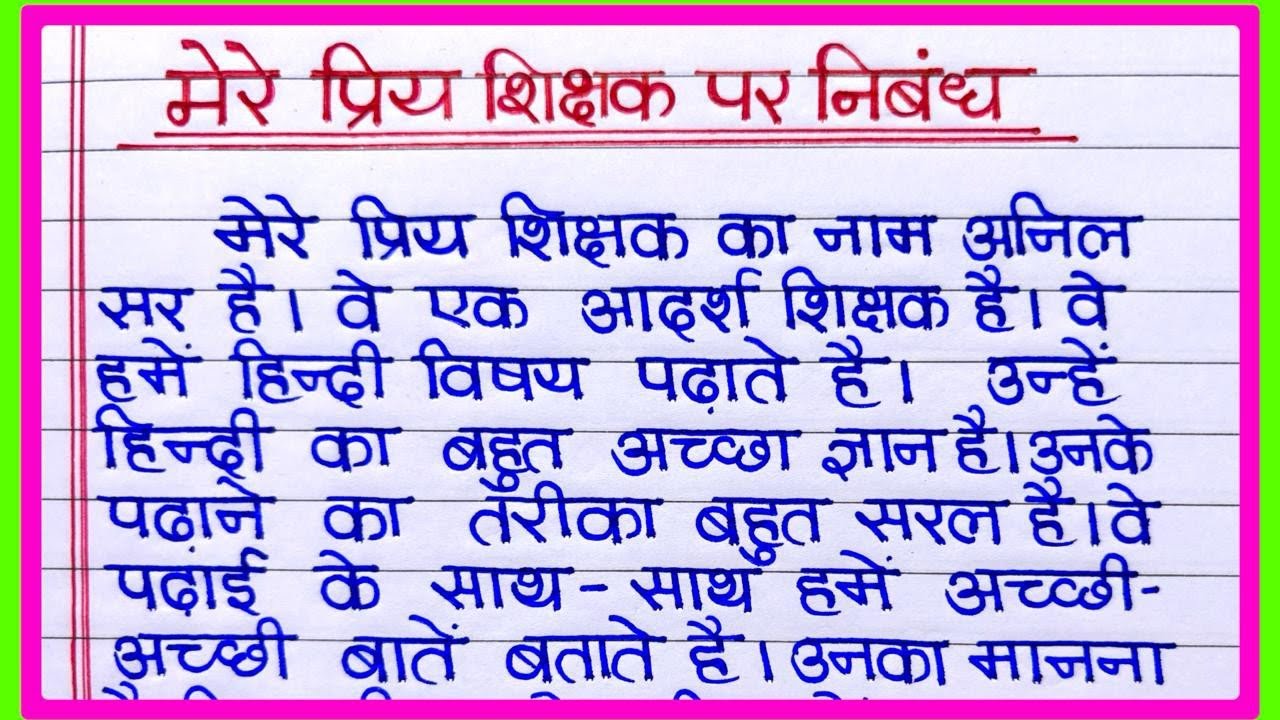 मेरे प्रिय शिक्षक पर निबंध
मेरे प्रिय शिक्षक का नाम अनिल
सर है। वे एक आदर्श शिक्षक है। वे
हमें हिन्दी विषय पढ़ाते है। उन्हें
हिन्दी का बहुत अच्छा ज्ञान है। उनके
पढा़ने का तरीका बहुत सरल है। वे
पढ़ाई के साथ-साथ हमें अच्छी-
अच्छी बातें बताते है। उनका मानना